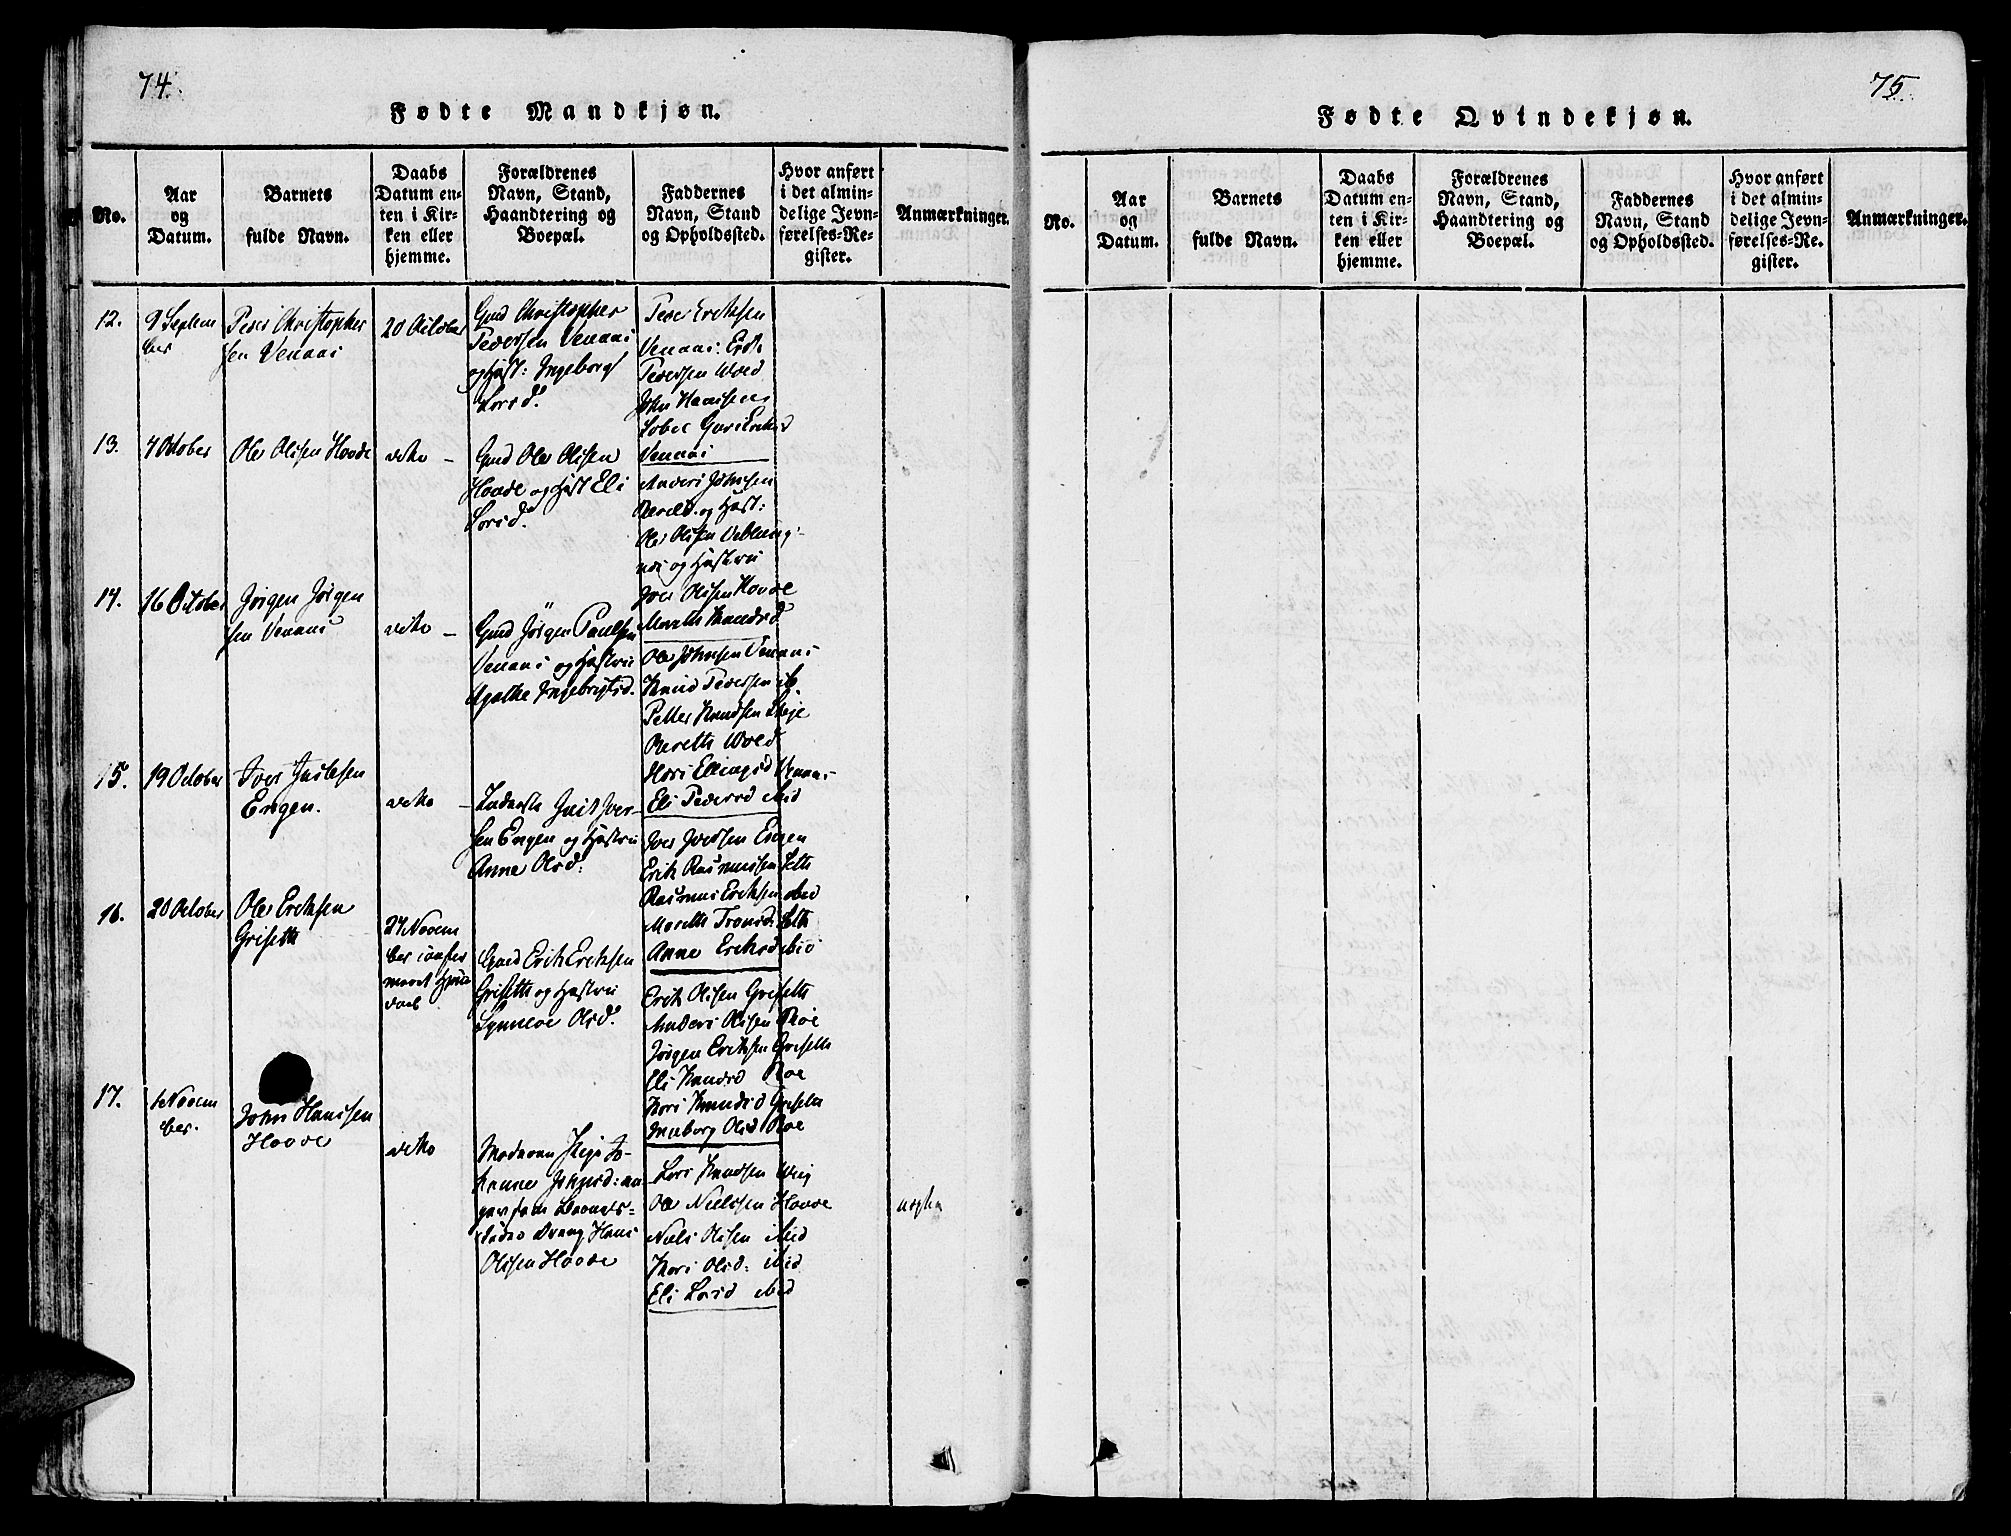 74.
Fødte Mandkjøn.
No.
Aar
og
Datum.
Barnets
fulde Navn.
Daabs
Datum en-
ten i Kir-
ken eller
hjemme.
Forældrenes
Navn, Stand,
Haandtering og
Boepæl.
Faddernes
Navn, Stand
og Opholdssted.
Hvor anført
i det almin-
delige Jevn-
førelses-Re-
gister.
Anmærkninger.
12.
9 Septem
ber
Peder Christopher
sen Venaas
20 October
Gmd Christopher
Pedersen Venaas
og Hust: Ingeborg
Larsd.
Peder Eriksen
Venaas. Erik
Pedersen Wold
John Hansen
Guri
Venaas
13.
4 October
Ole Olsen Hovde
dito –
Gmd Ole Olsen
Hovde og Hust Eli
Larsd.
Anders Johnsen
og Hust:
Ole Olsen Veblung-
næs og Hustrue
Iver Olsen Hovde
Marith Knudsd
14.
16 October
Jørgen Jørgen
sen Venaas
dito –
Gmd Jørgen Paulsen
Venaas og Hustru
Agathe Ingebrigtsd.
Ole Johnsen Venaas
Knud Pedersen ib.
Petter Knudsen
Bereth Wold
Kari Ellingsd Venaas
Eli Pedersd ibid
15.
19 October
Iver Justesen
Engen.
dito –
Inderste Just Iver-
sen Engen og Hustru
Anne Olsd:
Iver Iversen Engen
Erik Rasmussen Seth
Rasmus Eriksen ibid
Mareth Seth
Anne Eriksd ibid
16.
20 October
Ole Eriksen
Griseth
27 Novem
ber
daab
Gmd Erik Eriksen
Griseth og Hustru
Synneve Olsd.
Erik Olsen Griseth
Anders Olsen Roe
Jørgen Eriksen Griseth
Eli Knudsd Roe
Kari Knudsd Griseth
Ingeborg Olsd Roe
17.
Novem
ber.
John Hansen
Hovde
dito
Moderen Pige Jo-
hanne
Barnets-
fader Dreng Hans
Olsen Hovde
Lars Knudsen
Ole Nielssen Hovde
Niels Olsen ibid
Kari Olsd: ibid
Eli Larsd ibid
uægte
75.
Fødte Qvindekjøn.
No.
Aar
og
Datum.
Barnets
fulde Navn.
Daabs
Datum en-
ten i Kir-
ken eller
hjemme.
Forældrenes
Navn, Stand,
Haandtering og
Boepæl.
Faddernes
Navn, Stand
og Opholdssted.
Hvor anført
i det almin-
delige Jevn-
førelses-Re.
gister.
Anmærkninger.